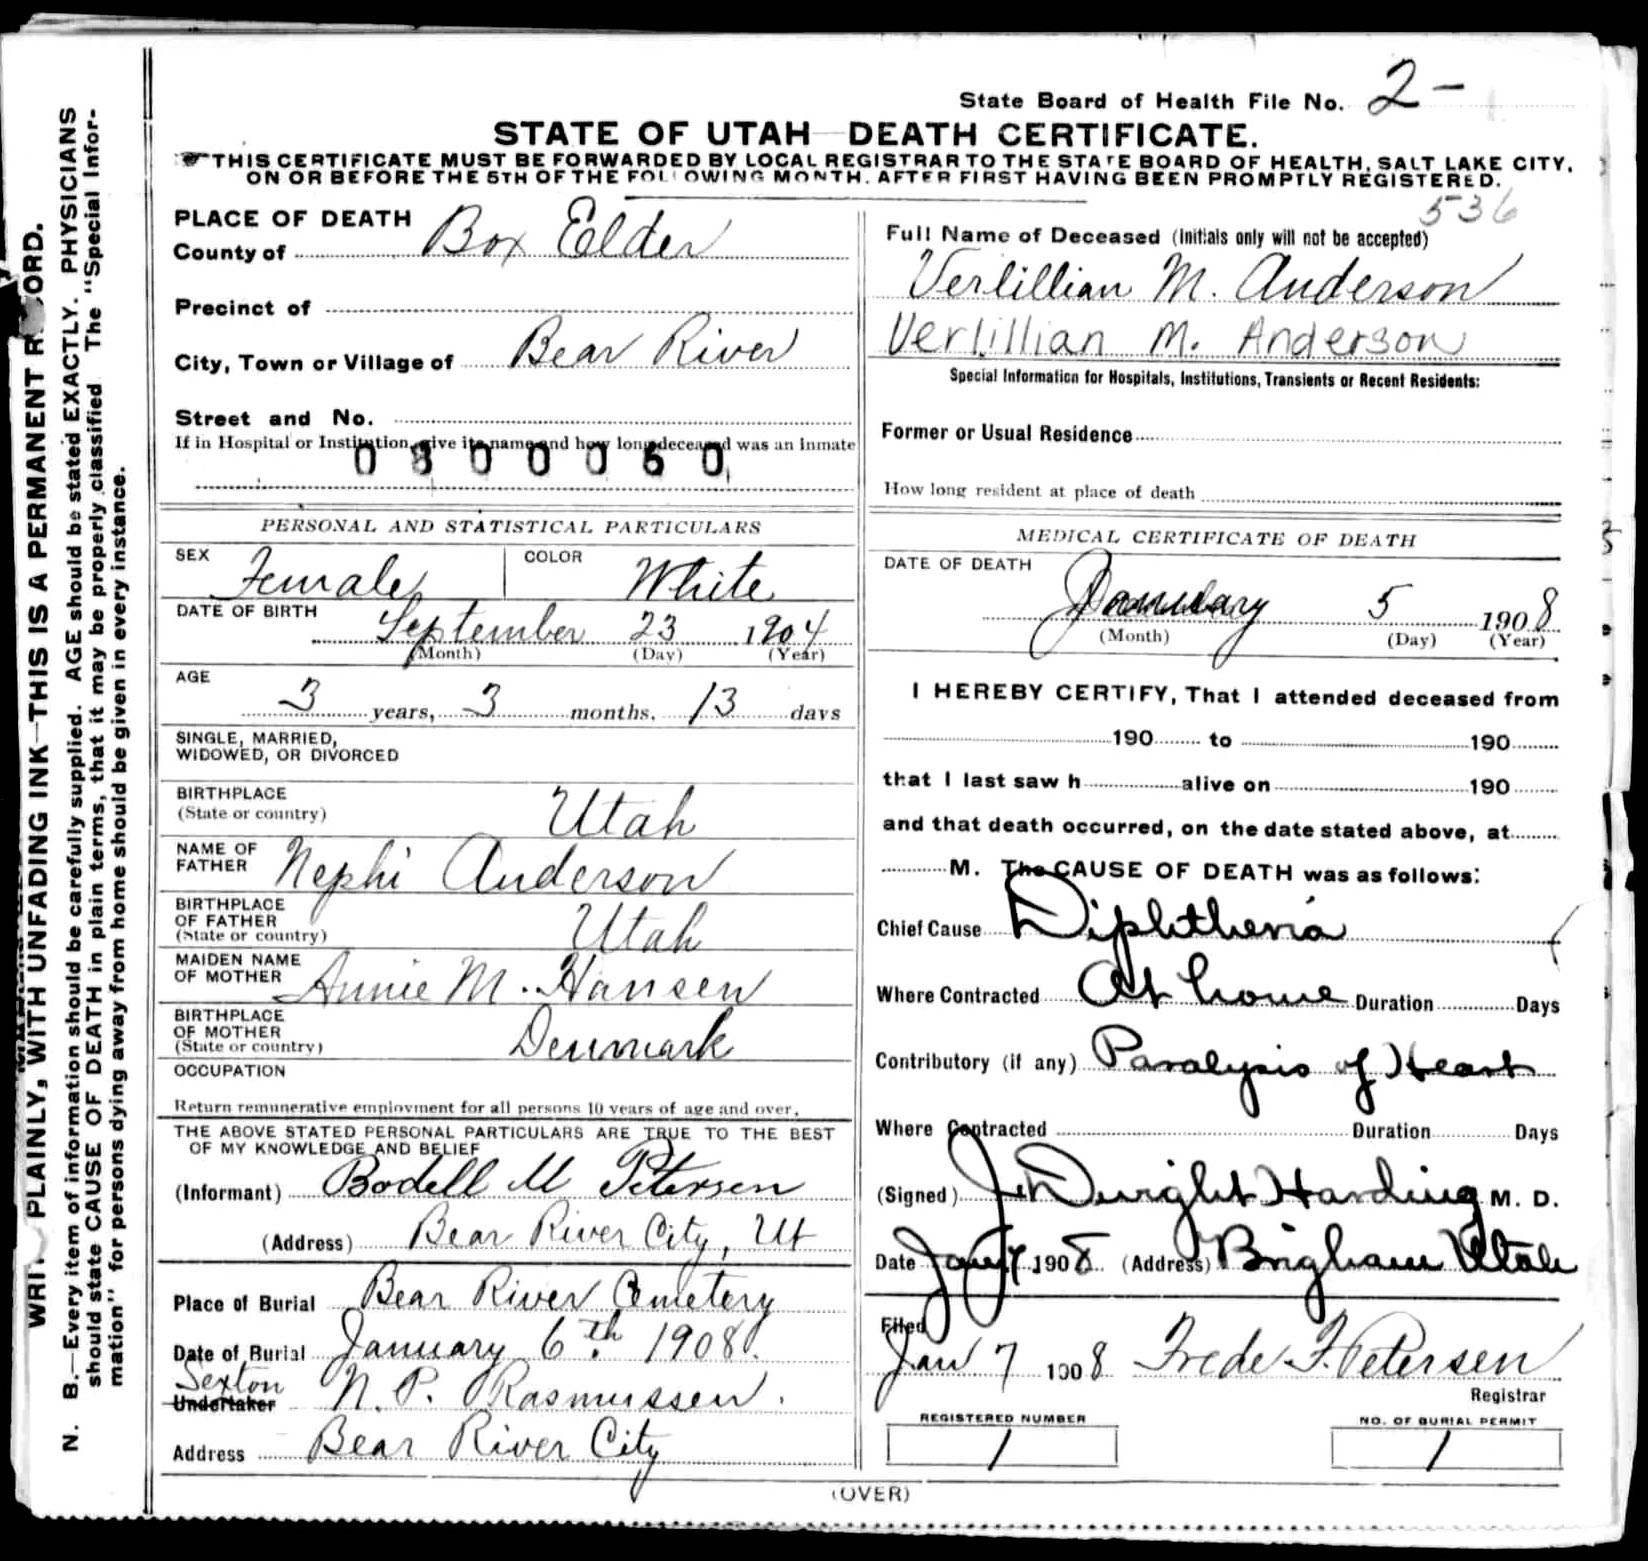 State Board of Health File No. 2-
STATE OF UTAH—DEATH CERTIFICATE.
☞THIS CERTIFICATE MUST BE FORWARDED BY LOCAL REGISTRAR TO THE STATE BOARD OF HEALTH, SALT LAKE CITY,
ON OR BEFORE THE 5TH OF THE FOLLOWING MONTH. AFTER FIRST HAVING BEEN PROMPTLY REGISTERED.
PLACE OF DEATH
County of Box Elder
Precinct of
City, Town or Village of Bear River
Street and No.
If in Hospital or Institution, give its name and how long deceased was an inmate
0300060
PERSONAL AND STATISTICAL PARTICULARS
SEX Female COLOR White
DATE OF BIRTH September 23 1904
(Month) (Day) (Year)
AGE
3 years, 3 months, 13 days
SINGLE, MARRIED,
WIDOWED, OR DIVORCED
BIRTHPLACE
(State or country) Utah
NAME OF
FATHER Nephi Anderson
BIRTHPLACE
OF FATHER
(State or country) Utah
MAIDEN NAME
OF MOTHER Annie M. Hansen
BIRTHPLACE
OF MOTHER
(State or country) Denmark
OCCUPATION
Return remunerative employment for all persons 10 years of age and over.
THE ABOVE STATED PERSONAL PARTICULARS ARE TRUE TO THE BEST
OF MY KNOWLEDGE AND BELIEF
(Informant) Bodell M Petersen
(Address) Bear River City, Ut
Place of Burial Bear River Cemetery
Date of Burial January 6th. 1908.
Sexton
Undertaker N. P. Rasmussen.
Address Bear River City
536
Full Name of Deceased (Initials only will not be accepted)
Verlillian M. Anderson
Verlillian M. Anderson
Special Information for Hospitals, Institutions, Transients or Recent Residents:
Former or Usual Residence
How long resident at place of death
MEDICAL CERTIFICATE OF DEATH
DATE OF DEATH
January 5 1908
(Month) (Day) (Year)
I HEREBY CERTIFY, That I attended deceased from
190 to 190
that I last saw h alive on 190
and that death occurred, on the date stated above, at
M. The CAUSE OF DEATH was as follows:
Chief Cause Diphtheria
Where Contracted At home Duration Days
Contributory (if any) Paralysis of Heart
Where Contracted Duration Days
(Signed) J. Dwight Harding M. D.
Date Jany 7 1908 (Address) Brigham Utah
Filed
Jan 7 1908 Frede F. Petersen
Registrar
REGISTERED NUMBER NO. OF BURIAL PERMIT
1 1
(OVER)
PLAINLY, WITH UNFADING INK—THIS IS A PERMANENT
N. B.—Every item of information should be carefully supplied. AGE should be stated EXACTLY. PHYSICIANS
should state CAUSE OF DEATH in plain terms, that it may be properly classified The "Special Infor-
mation" for persons dying away from home should be given in every instance.